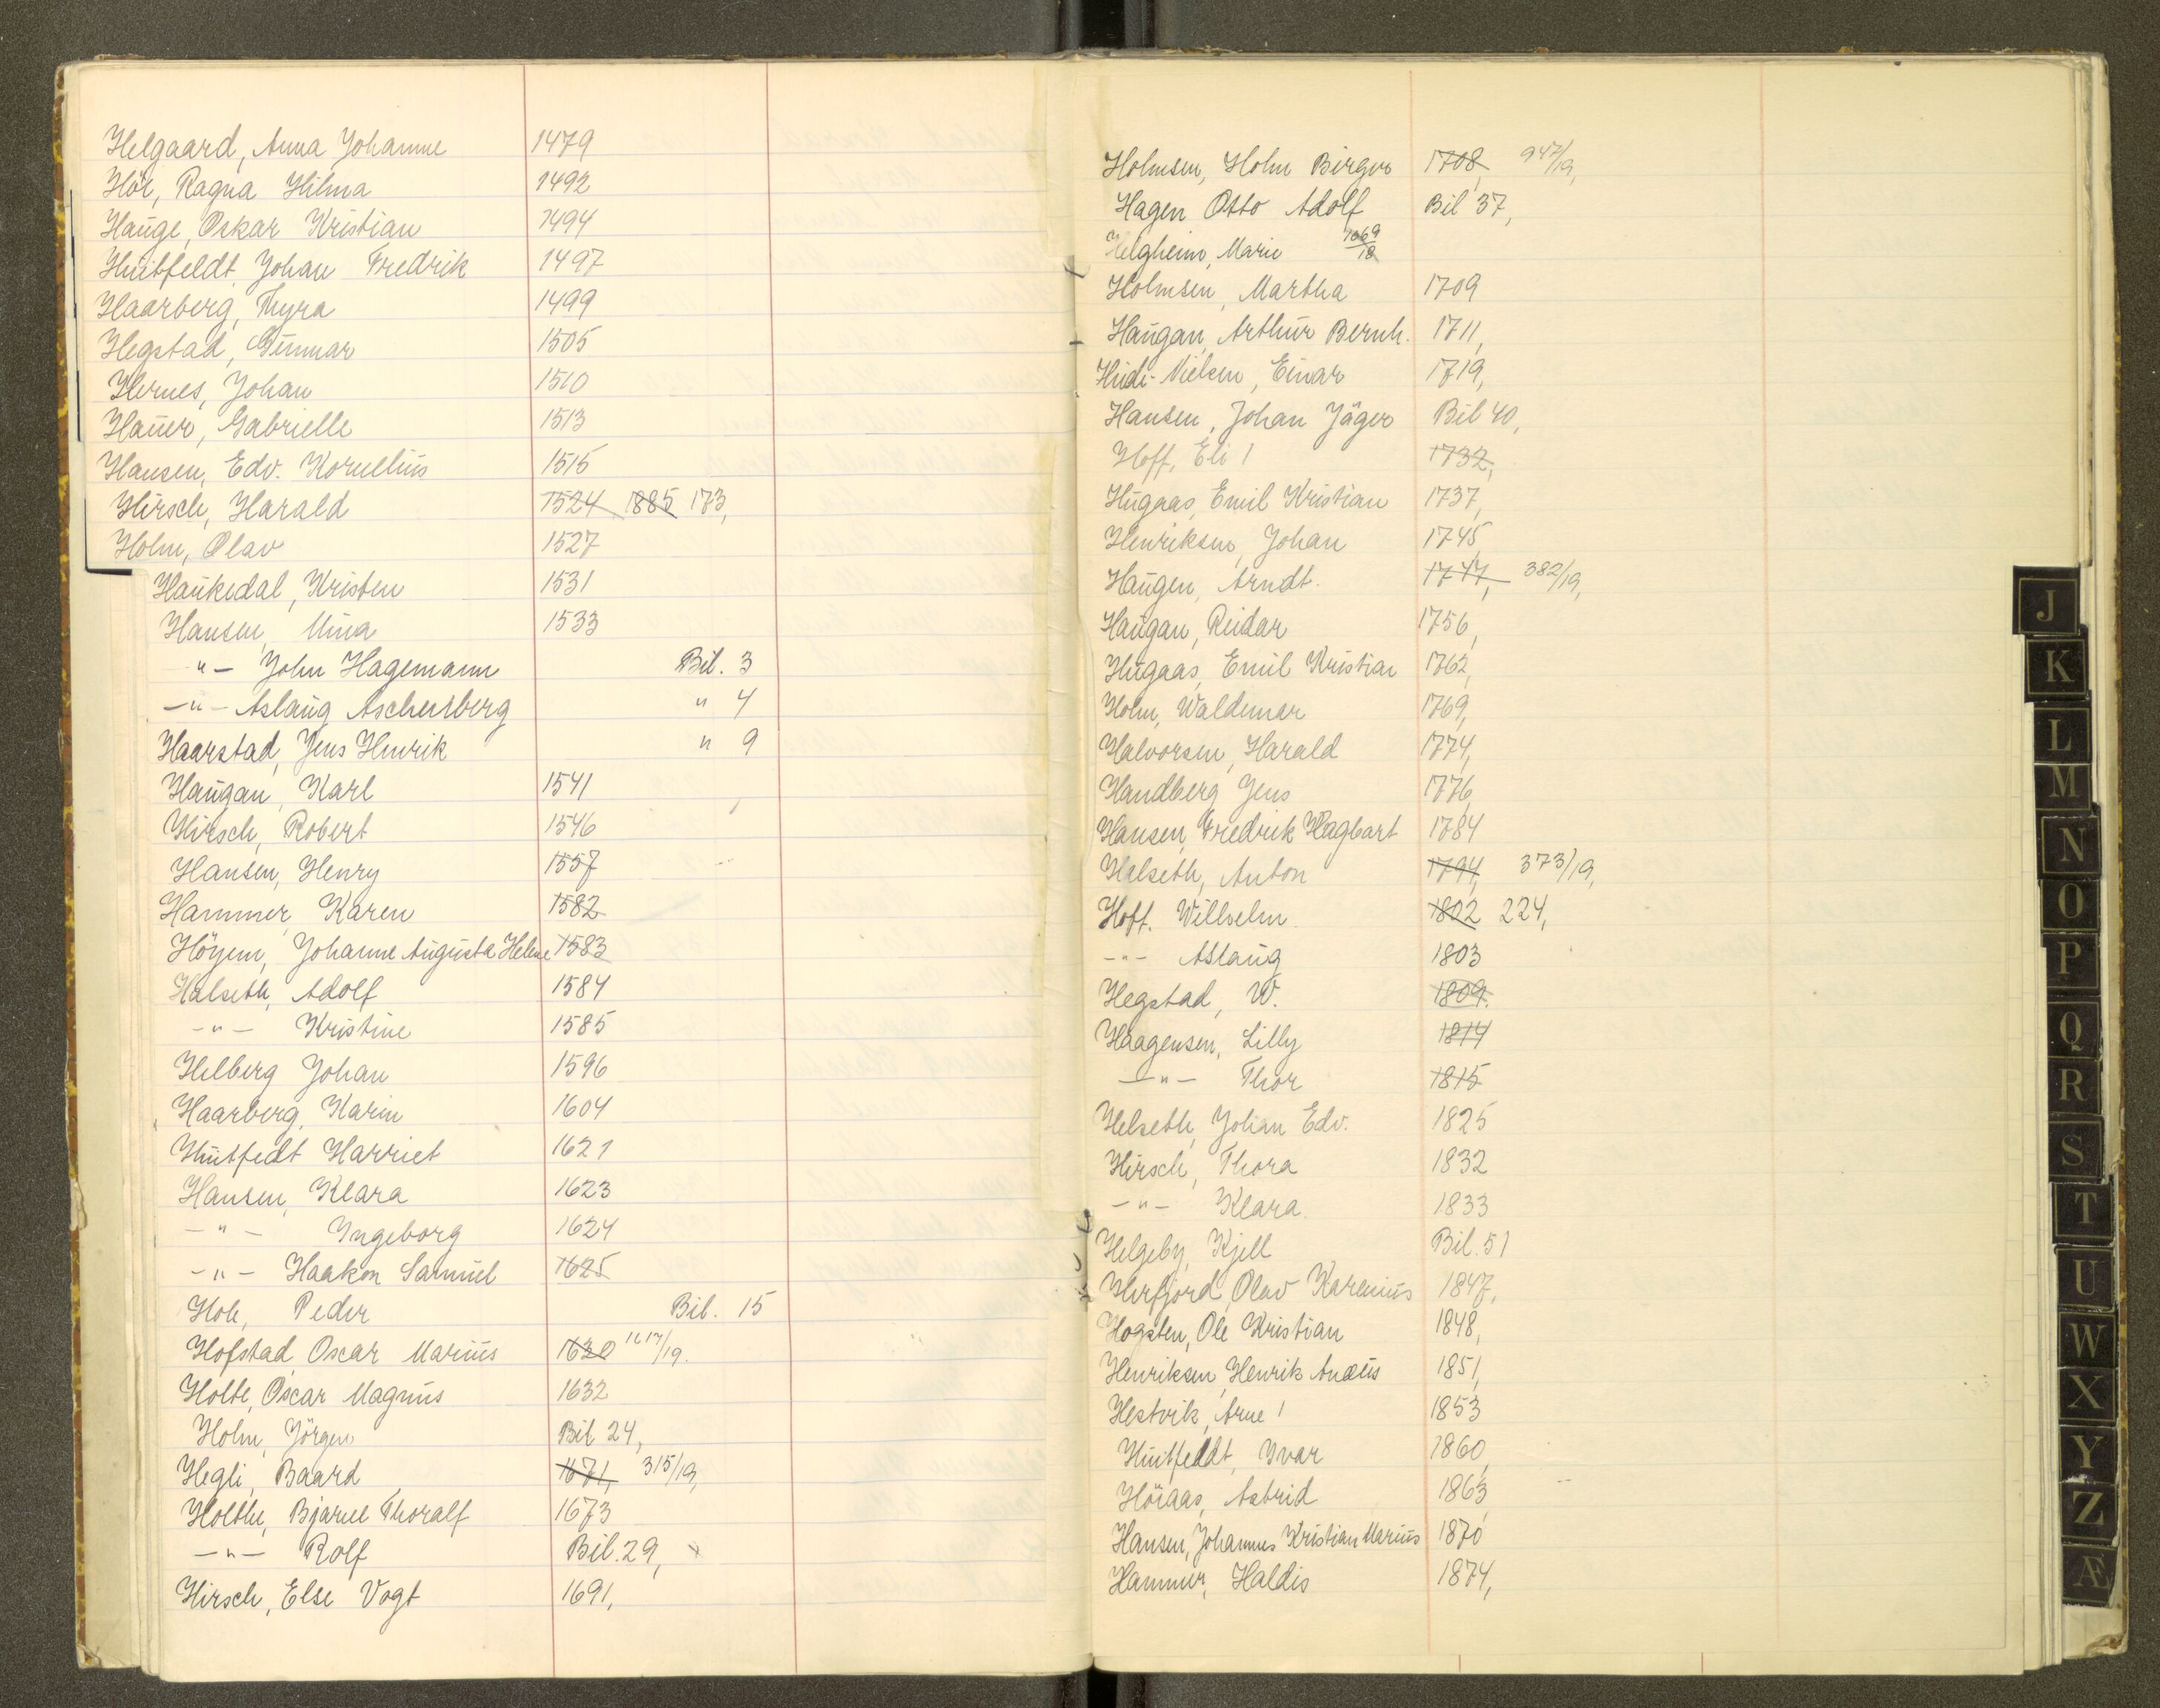 Helgaard, Anna Johanne 1479
Hör, Ragna Hilma 1492
Hauge, Oskar Kristian 1494
Huitfeldt, Johan Fredrik 1497
Haarberg, Thyra 1499
Hegstad, Gunnar 1505
Hernes, Johan 1510
Hauer, Gabrielle 1513
Hansen, Edv. Kornelius 1515
Hirsch, Harald 1524 1885 173,
Holm, Olav 1527
Haukedal, Kristen 1531
Hansen, Mina 1533
-"- John Hagemann Bil. 3
-"- Aslaug Aschenberg " 4
Haarstad, Jens Henrik " 9
Haugan, Karl 1541
Hirsch, Robert 1546
Hansen, Henry 1557
Hammer, Karen 1582
Höyem, Johanne Augusta Helene 1583
Halseth, Adolf 1584
-"- Kristine 1585
Helberg Johan 1596
Haarberg, Karin 1604
Huitfedt Harriet 1621
Hansen, Klara 1623
-"- Ingeborg 1624
-"- Haakon Samuel 1625
Hoh, Peder Bil. 15
Hofstad, Oscar Marius 1630 1617/19.
Holte, Oscar Magnus 1632
Holm, Jörgen Bil 24,
Hegli, Baard 1671, 315/19,
Holthe, Bjarne Thoralf 1673
-"- Rolf Bil. 29,
Hirsch, Else Vogt 1691,
Holmsen, Holm Birger 1708, 947/19,
Hagen Otto Adolf Bil 37,
Helgheim, Marie 1069/18
Holmsen, Martha 1709
Haugan, Arthur Bernh. 1711,
Hudi-Nielsen, Einar 1719,
Hansen, Johan Jäger Bil 40,
Hoff, Eli 1732,
Hugaas, Emil Kristian 1737,
Henriksen, Johan 1745
Haugen, Arndt. 1747, 382/19,
Haugan, Reidar 1756,
Hugaas, Emil Kristian 1762,
Holm, Waldemar 1769,
Halvorsen, Harald 1774,
Handberg Jens 1776,
Hansen, Fredrik Hagbart 1784
Halseth, Anton 1794, 373/19,
Hoft. Wilhelm 1802 224,
-"- Aslaug 1803
Hegstad, W. 1809.
Haagensen, Lilly 1814
-"- Thor 1815
Helseth, Johan Edv. 1825
Hirsch, Thora 1832
-"- Klara. 1833
Helgeby, Kjell Bil. 51
Herfjord, Olav Karenius 1847,
Hogsten, Ole Kristian 1848,
Henriksen, Henrik 1851,
Hestvik, Arne 1853
Huitfeldt, Ivar 1860,
Höiaas, Astrid 1863
Hansen, Johannes Kristian Marius 1870
Hammer, Haldis 1874,
J
K
L
M
N
O
P
Q
R
S
T
U
W
X
Y
Z
Æ